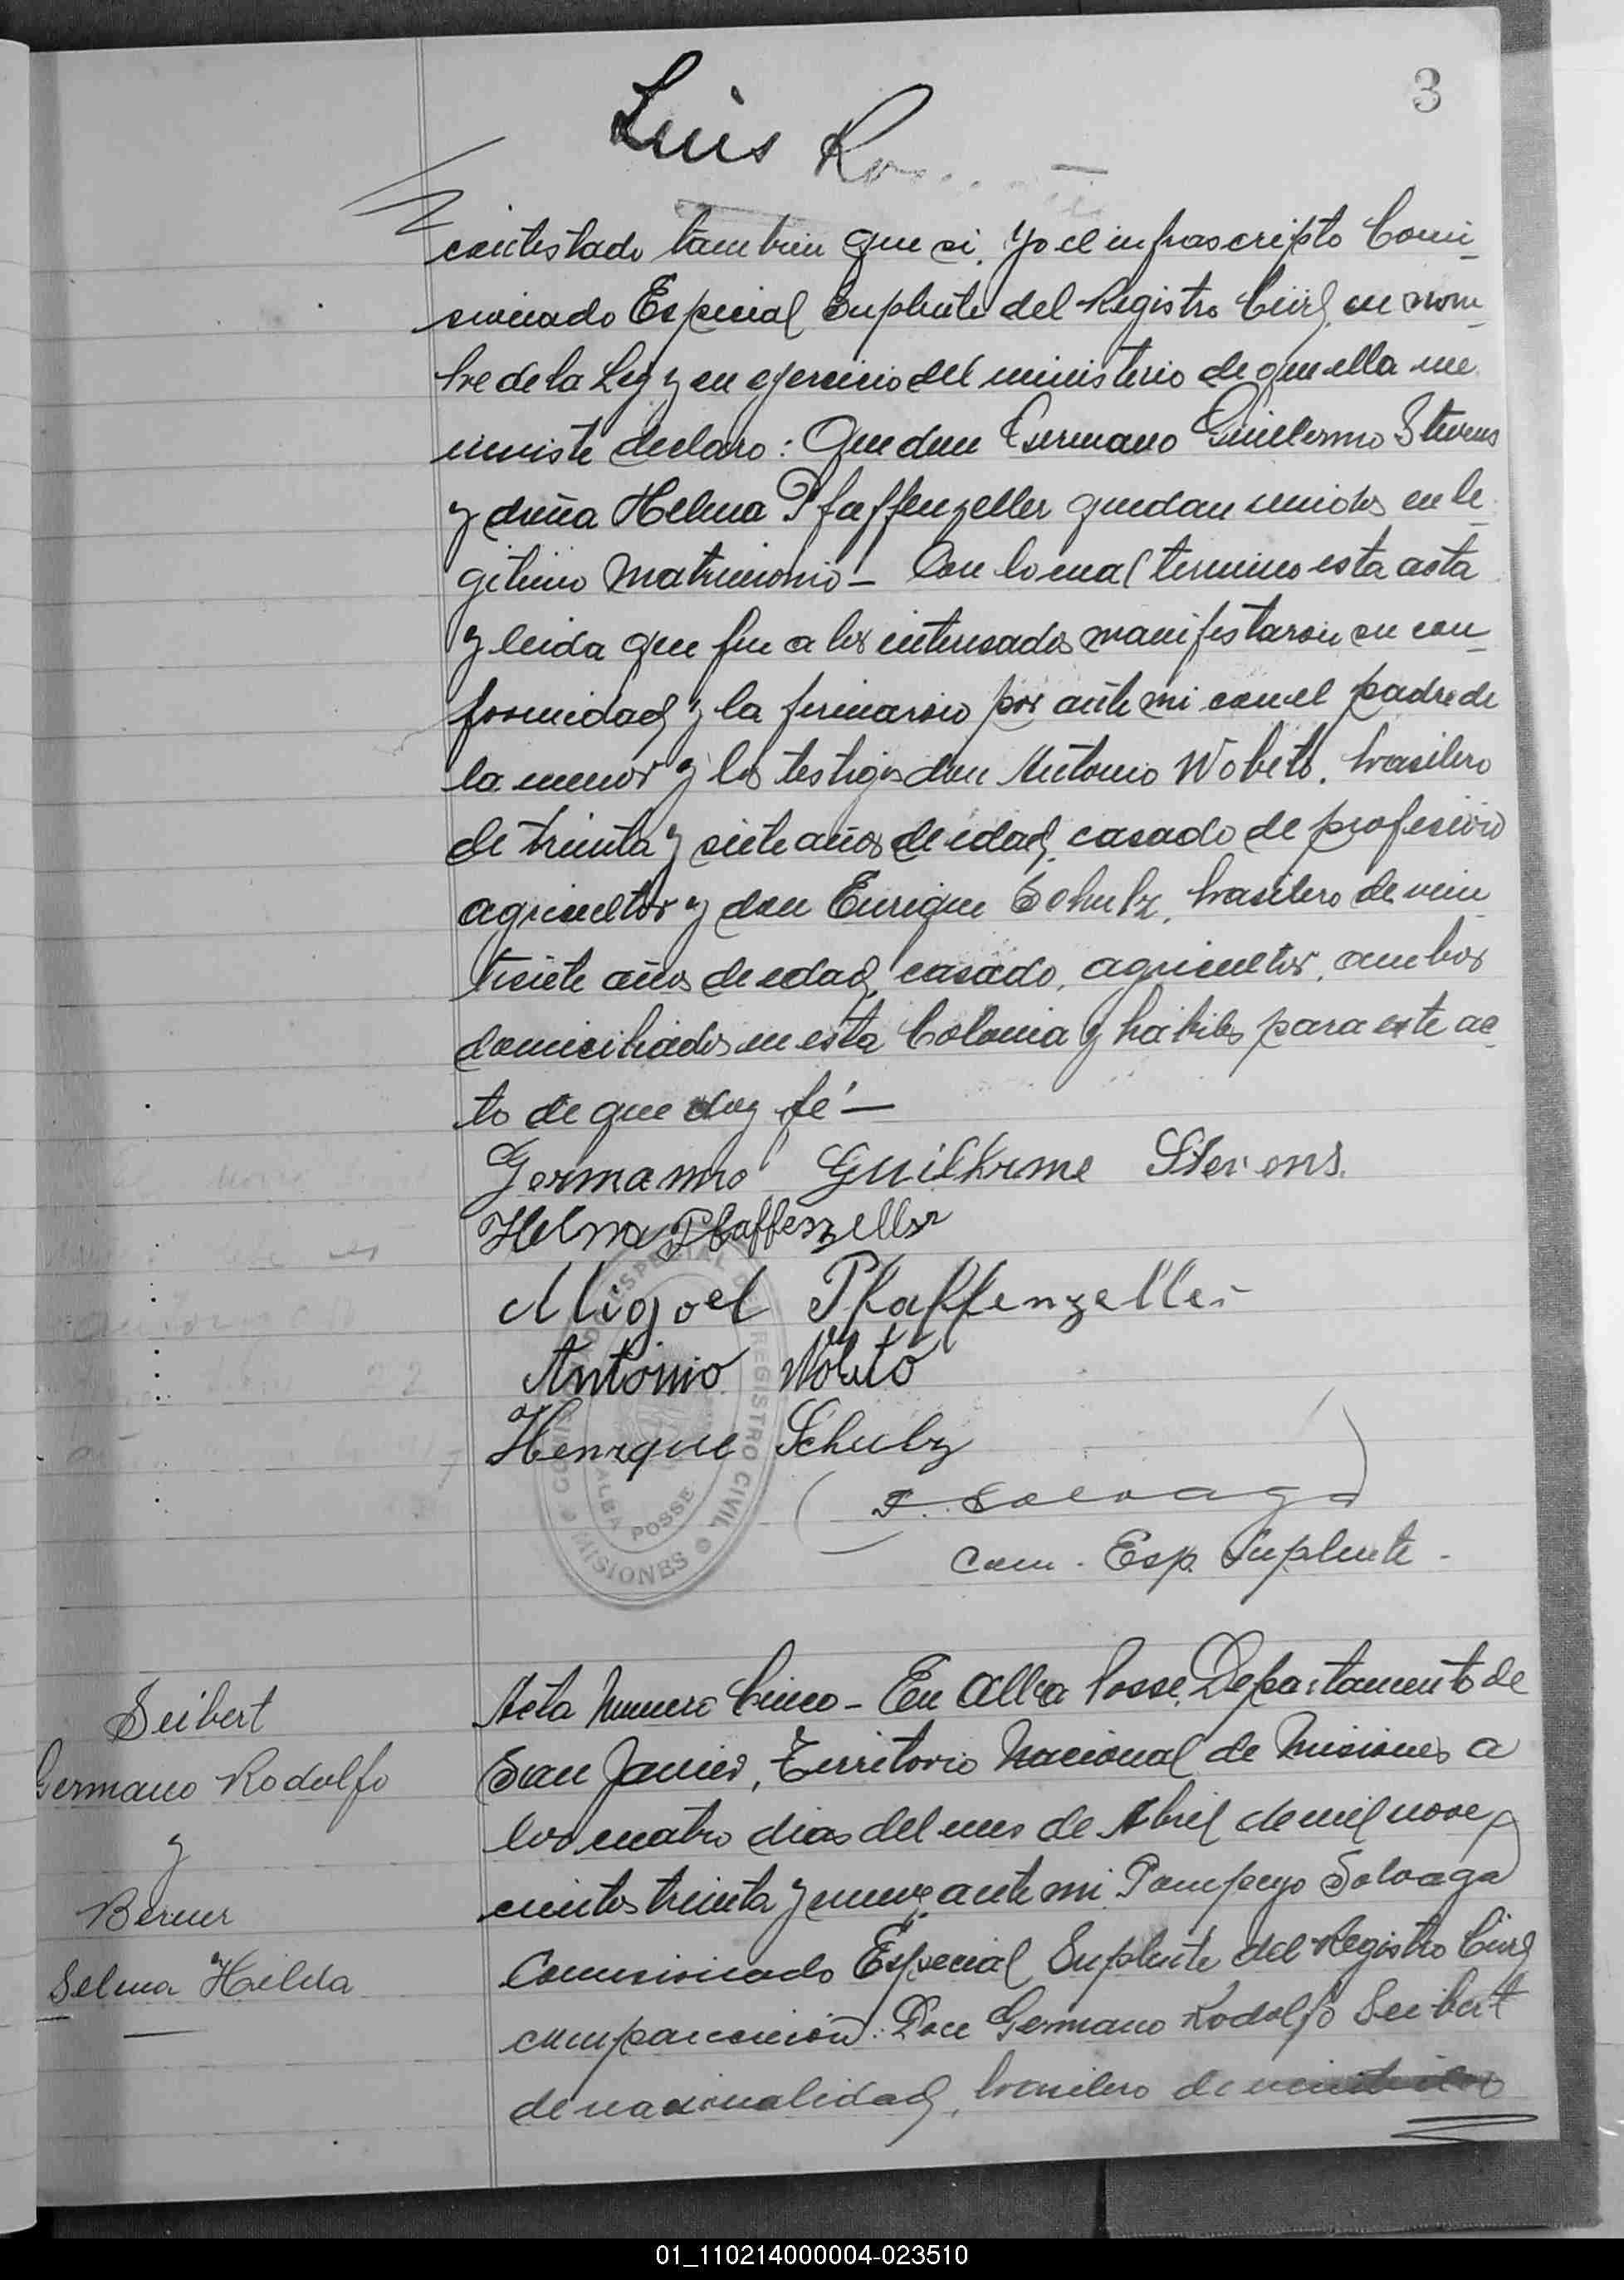 3
Luis
contestado tambien que si. Yo el infrascripto Comi-
sionado Especial Suplente del Registro Civil, en nom-
bre de la Ley y en ejercicio del ministerio de que ella me
inviste declaro: Que don Germano Guillermo Stevens
y doña Helma Pfaffenzeller quedan unidos en le-
gitimo matrimonio — Con lo cual termino esta acta
y leida que fue a los interesados manifestaron su con-
formidad y la firmaron por ante mi con el padre de
la menor y los testigos don Antonio Wobeto, brasilero
de treinta y siete años de edad, casado de profesion
agricultor y don Enrique Schulz, brasilero de vein-
tisiete años de edad, casado, agricultor, ambos
domiciliados en esta Colonia y habiles para este ac-
to de que doy fé —
Germanno Guilherme Stevens.
Helma Pfaffenzeller
Migoel Pfaffenzeller
Antonio Wobeto
Henrque Schulz
COMISIONADO ESPECIAL DEL REGISTRO CIVIL
ALBA POSSE
MISIONES
P. Solvaga
Com. Esp. Suplente -
Seibert
Germano Rodolfo
y
Berner
Selma Hilda
Acta Numero Cinco — En Alba Posse, Departamento de
San Javier, Territorio Nacional de Misiones a
los cuatro dias del mes de Abril de mil nove-
cientos treinta y nueve, ante mi Pompeyo Solvaga
Comisionado Especial Suplente del Registro Civil
comparecieron: Don Germano Rodolfo Seibert
de nacionalidad, brasilero de
01_110214000004-023510